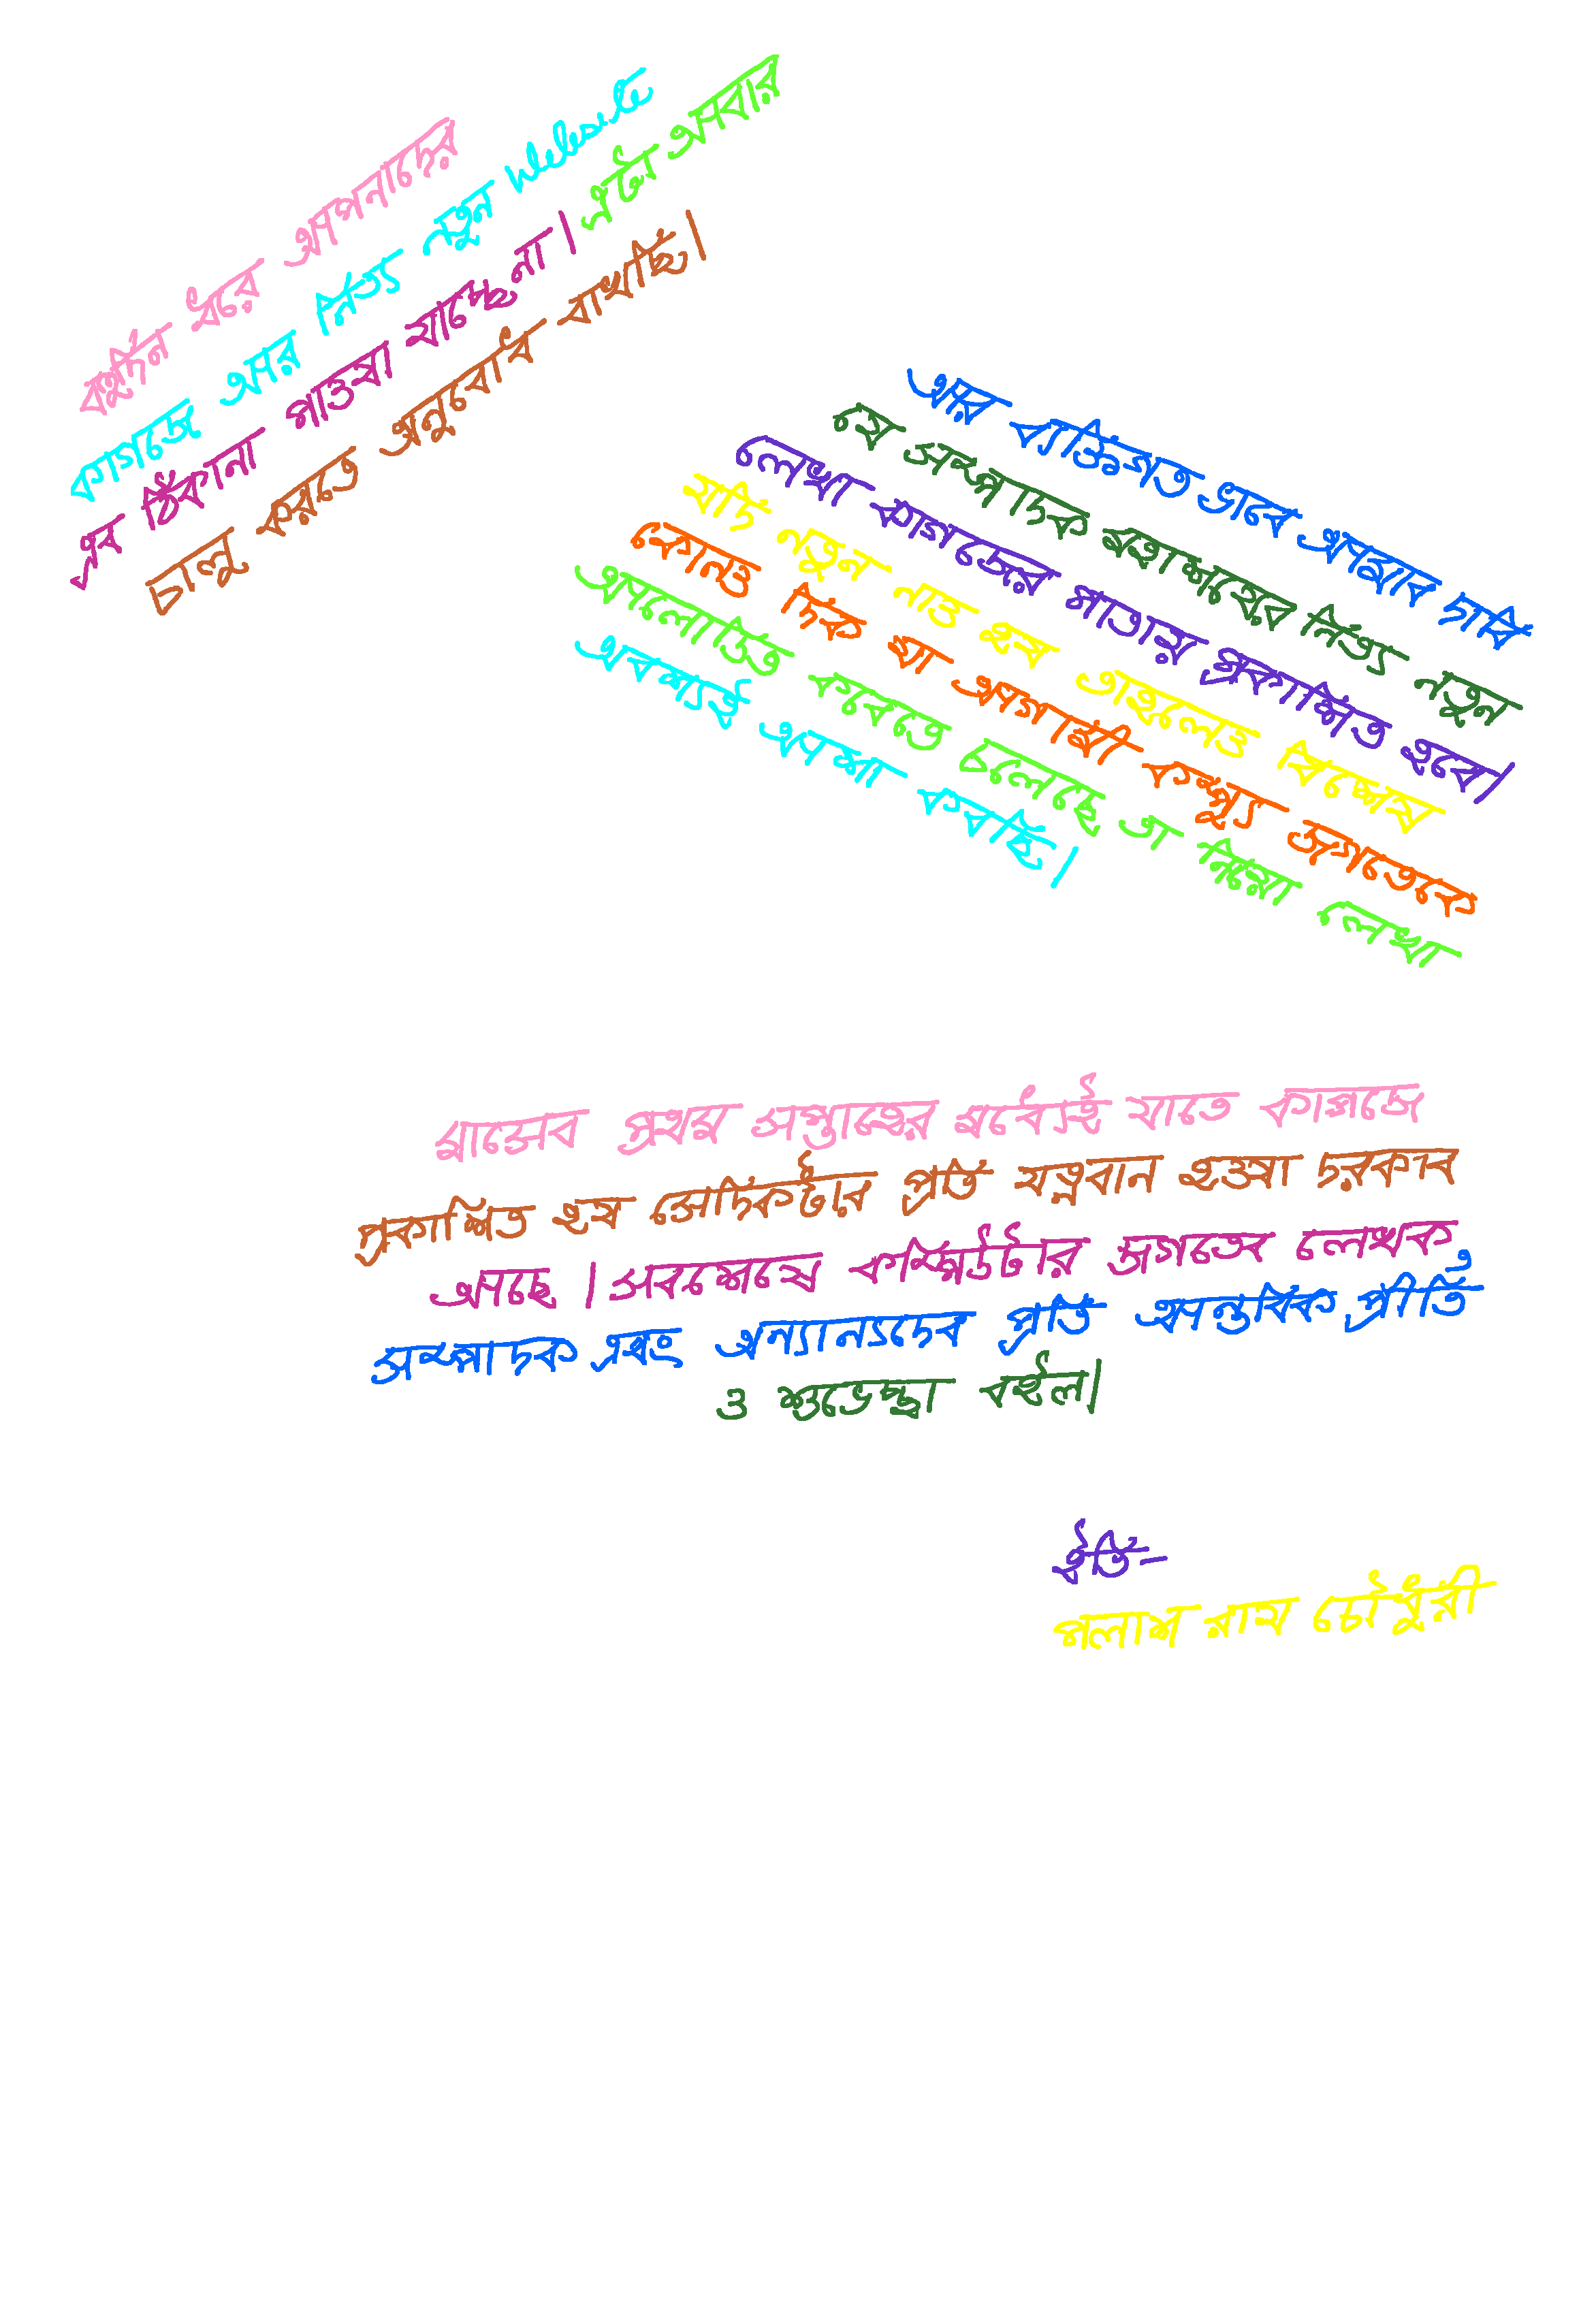 বহুদিন ধরে আপনাদের
কাগজে আর নিত্য নতুন website
এর ঠিকানা পাওয়া যাচ্ছেনা। এটা আবার
চালু করতে অনুরোধ রাখছি।
আর ব্যক্তিগত ভাবে আমার দাবি
যে সম্পাদক মহাশয়ের নিত্য নতুন
লেখা কাগজের পাতায় প্রকাশিত হবে।
যদি নতুন নাও হয় তাহলেও বিশেষ
কোনও দিক যা আগামী কম্প্যু জগতকে
আলোড়িত করতে চলেছে তা নিয়ে লেখা
অবশ্যই আশা করছি।
মাসের প্রথম সপ্তাহের মধ্যেই যাতে কাগজ
প্রকাশিত হয় সেদিকটার প্রতি যত্নবান হওয়া দরকার
আছে। সবশেষে কম্পিউটার জগতের লেখক,
সম্পাদক এবং অন্যান্যদের প্রতি আন্তরিক প্রীতি
ও শুভেচ্ছা রইল।
ইতি-
পলাশ রায় চৌধুরী